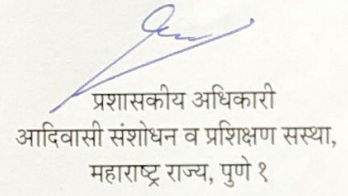 प्रशासकीय अधिकारी
आदिवासी संशोधन व प्रशिक्षण सस्था,
महाराष्ट्र राज्य, पुणे १